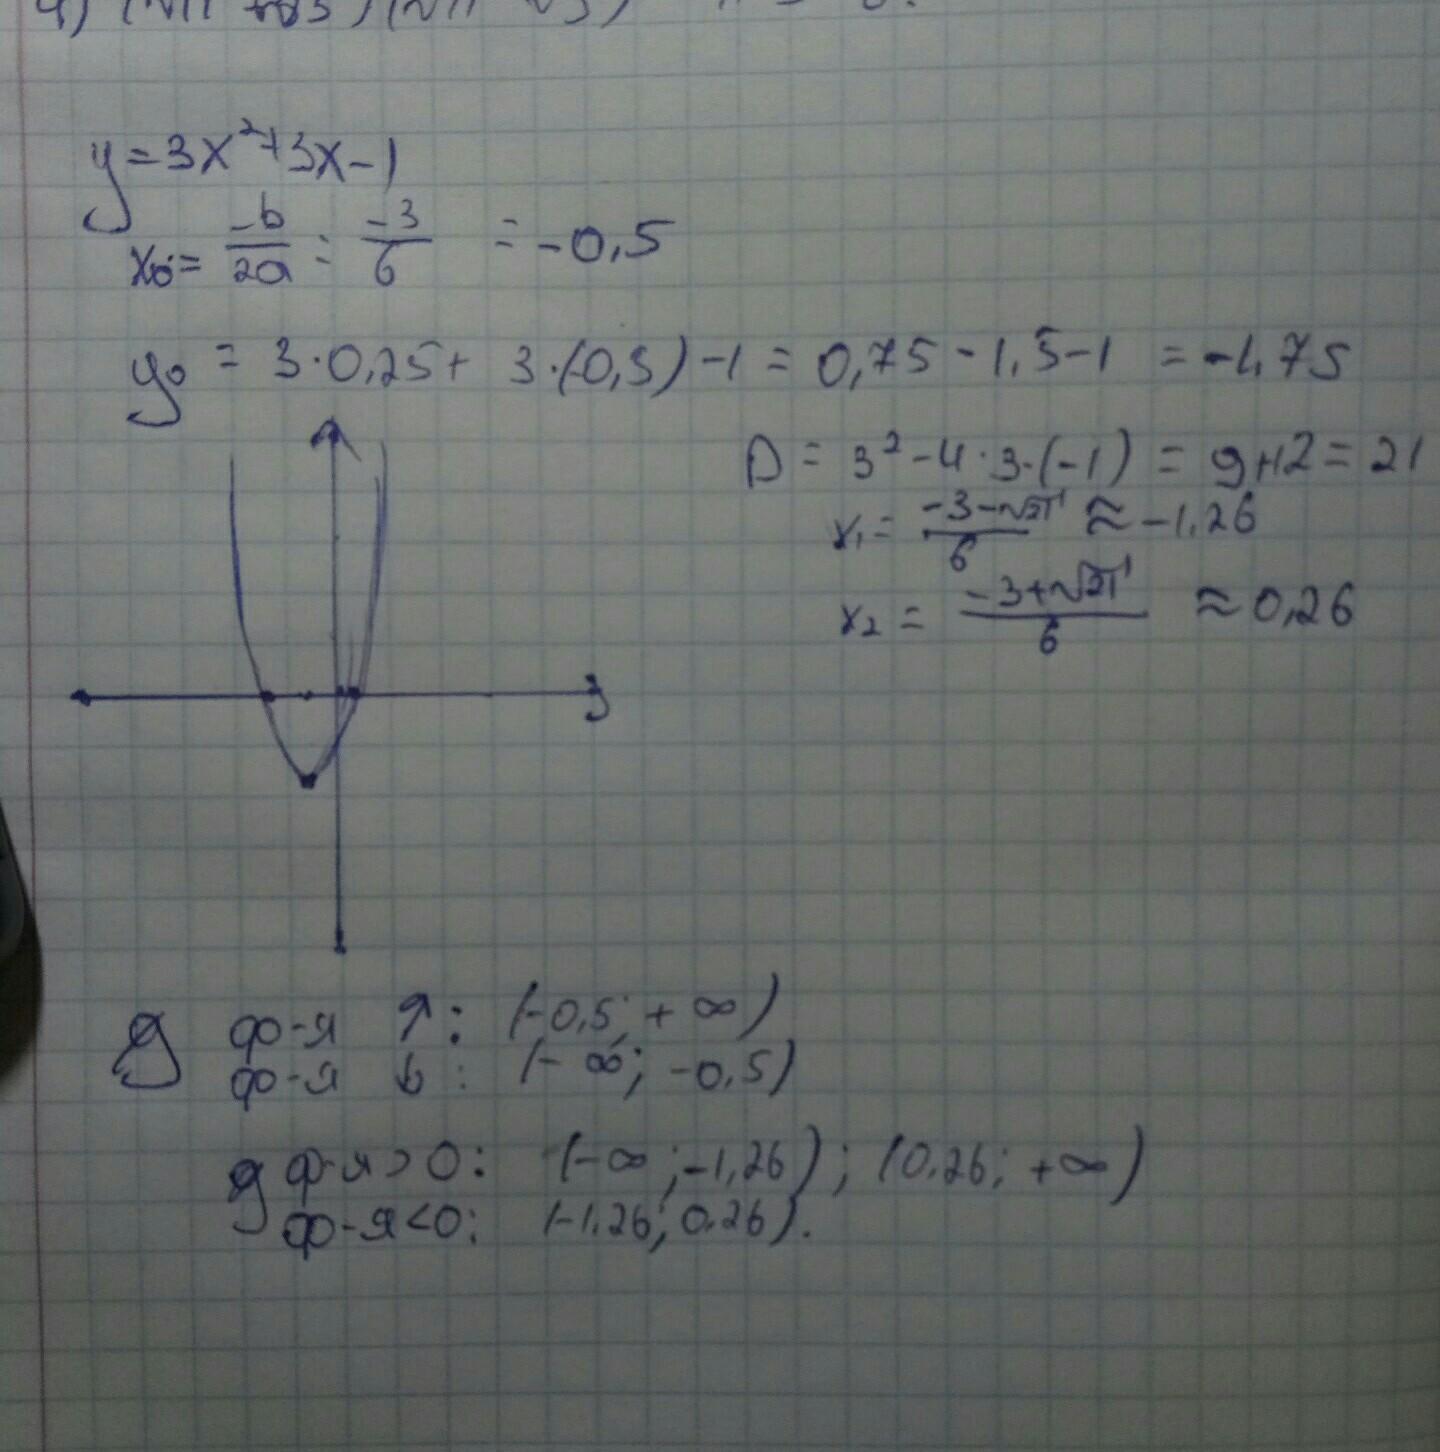 y = 3x²+3x-1
x₀ = -b/2a = -3/6 = -0,5
y₀ = 3·0,25+ 3·(-0,5)-1 = 0,75-1,5-1 = -1,75
D = 3²-4·3·(-1) = 9+12 = 21
x₁ = (-3-√21)/6 ≈ -1,26
x₂ = (-3+√21)/6 ≈ 0,26
ф-я ↑: (-0,5; +∞)
ф-я ↓: (-∞; -0,5)
ф-я>0: (-∞; -1,26); (0,26; +∞)
ф-я<0: (-1,26; 0,26).